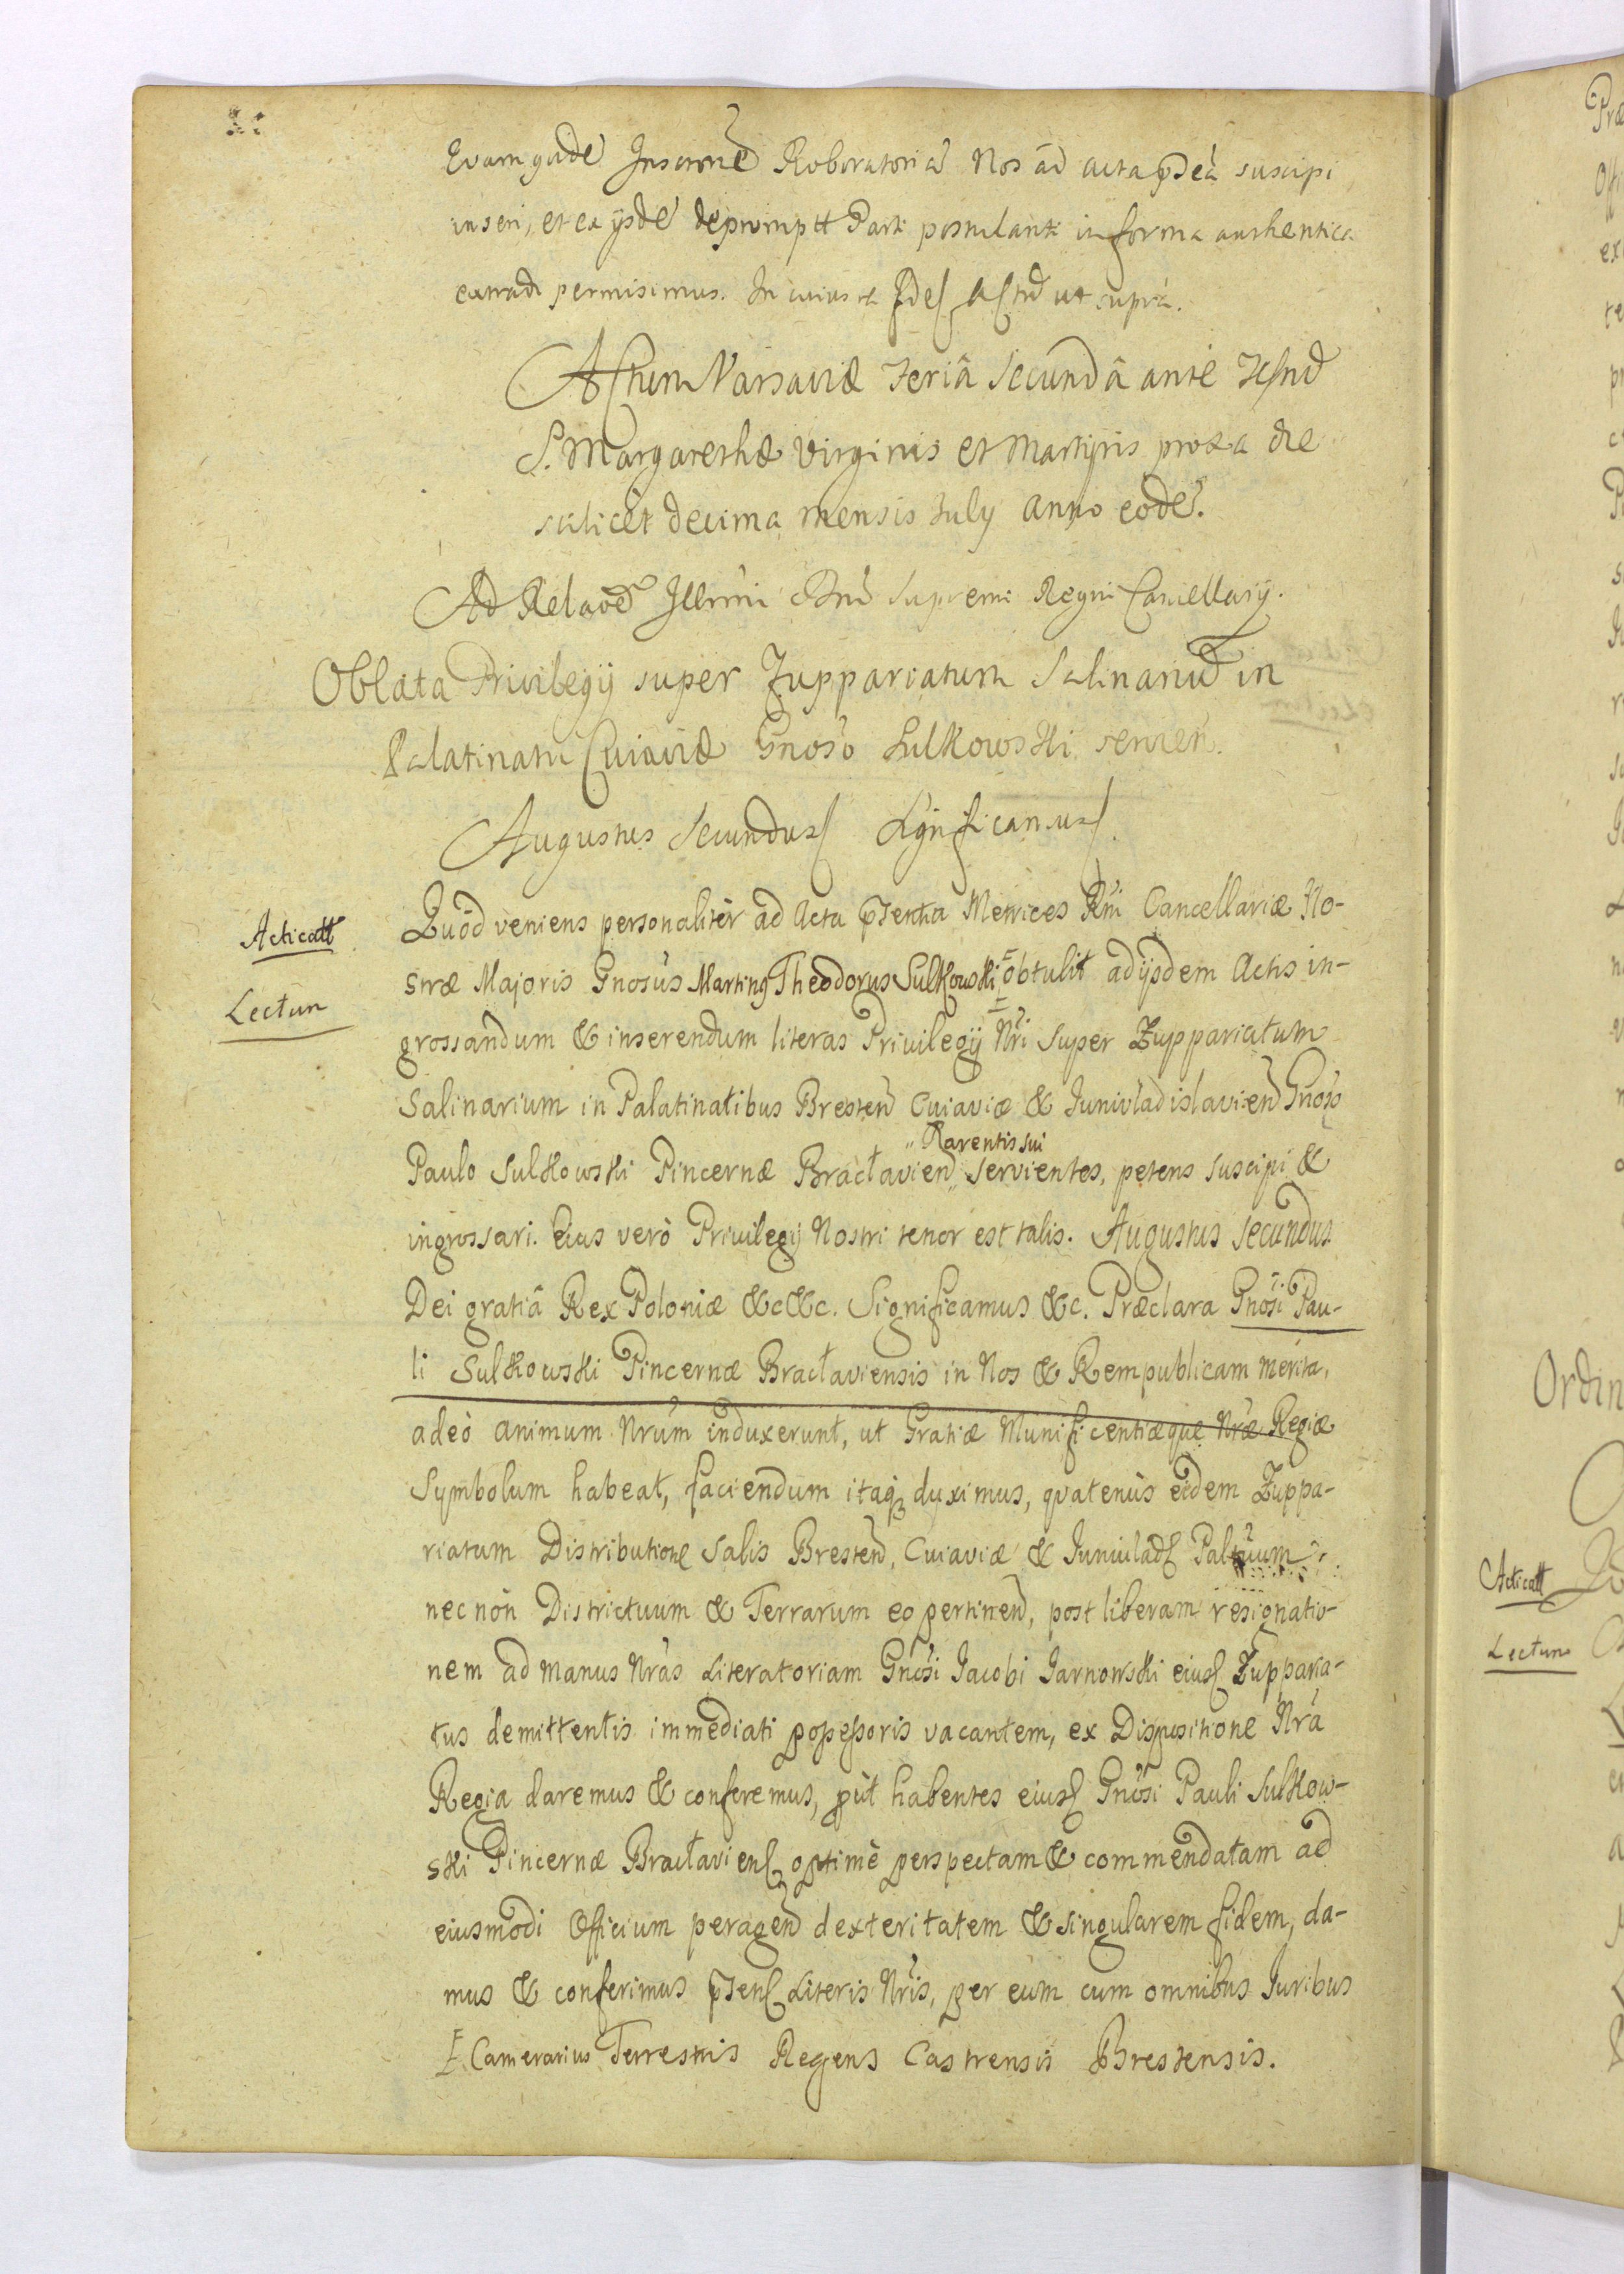 Evamgude Inscrone Roboratoria Nos ad acta pdca suscipi
inseri, et ex ijsde depromptt Parti postulanti in forma authentica
extradi permisimus. In cuius rei fide Actu ut supra.
Actum Varsaviæ Feriâ Secundâ ante Festu
S. Margarethæ Virginis et Martyris proxa die
scilicet decima mensis July anno eode.
Ad Relaoe Illrmi Dni Supremi Regni Cancellarij.
Oblata Privilegij super Zuppariatum Salinaru in
Palatinatu Cuiaviæ Gnoso Sulkowski servien.
Augustus Secundus Significamus
Acticatt
Lectum
Quòd veniens personalitèr ad Acta pntia Metrices Rni Cancellariæ No-
stræ Majoris Gnosus Martinq Theodorus Sulkowski obtulit ad ijsdem Actis in-
grossandum & inserendum literas Privilegij Nri super Zuppariatum
Salinarium in Palatinatibus Bresten Cuiaviæ & Junivladislavien Gnoso
Parentis sui
Paulo Sulkowski Pincernæ Bracłavien servientes, petens suscipi &
ingrossari. Eius verò Privilegij Nostri tenor est talis. Augustus Secundus
Dei gratiâ Rex Poloniæ &c &c. Significamus &c. Præclara Gnosi Pau-
li Sulkowski Pincernæ Bracłaviensis in Nos & Rempublicam merita,
adeò animum Nrum induxerunt, ut Gratiæ Munificentiæque Nræ Regiæ
Symbolum habeat, faciendum itaq duximus, quatenùs eidem Zuppa-
riatum Distributione Salis Bresten, Cuiaviæ & Junivlad Paltuum
nec nòn Districtuum & Terrarum eo pertinen, post liberam resignatio-
nem ad manus Nras Literatoriam Gnosi Jacobi Jarnowski eius Zuppa-
tus demittentis immediati possessoris vacantem, ex Dispositione Nra
Regia daremus & conferemus, put habentes eius Gnosi Pauli Sulkow-
ski Pincernæ Bracłavien optimè perspectam & commendatam ad
eiusmodi Officium peragen dexteritatem & singularem fidem, da-
mus & conferimus pnten Literis Nris, per eum cum omnibus Juribus
Camerarius Terrestris Regens Castrensis Brestensis.
Ordin
Acticatt
Lectum